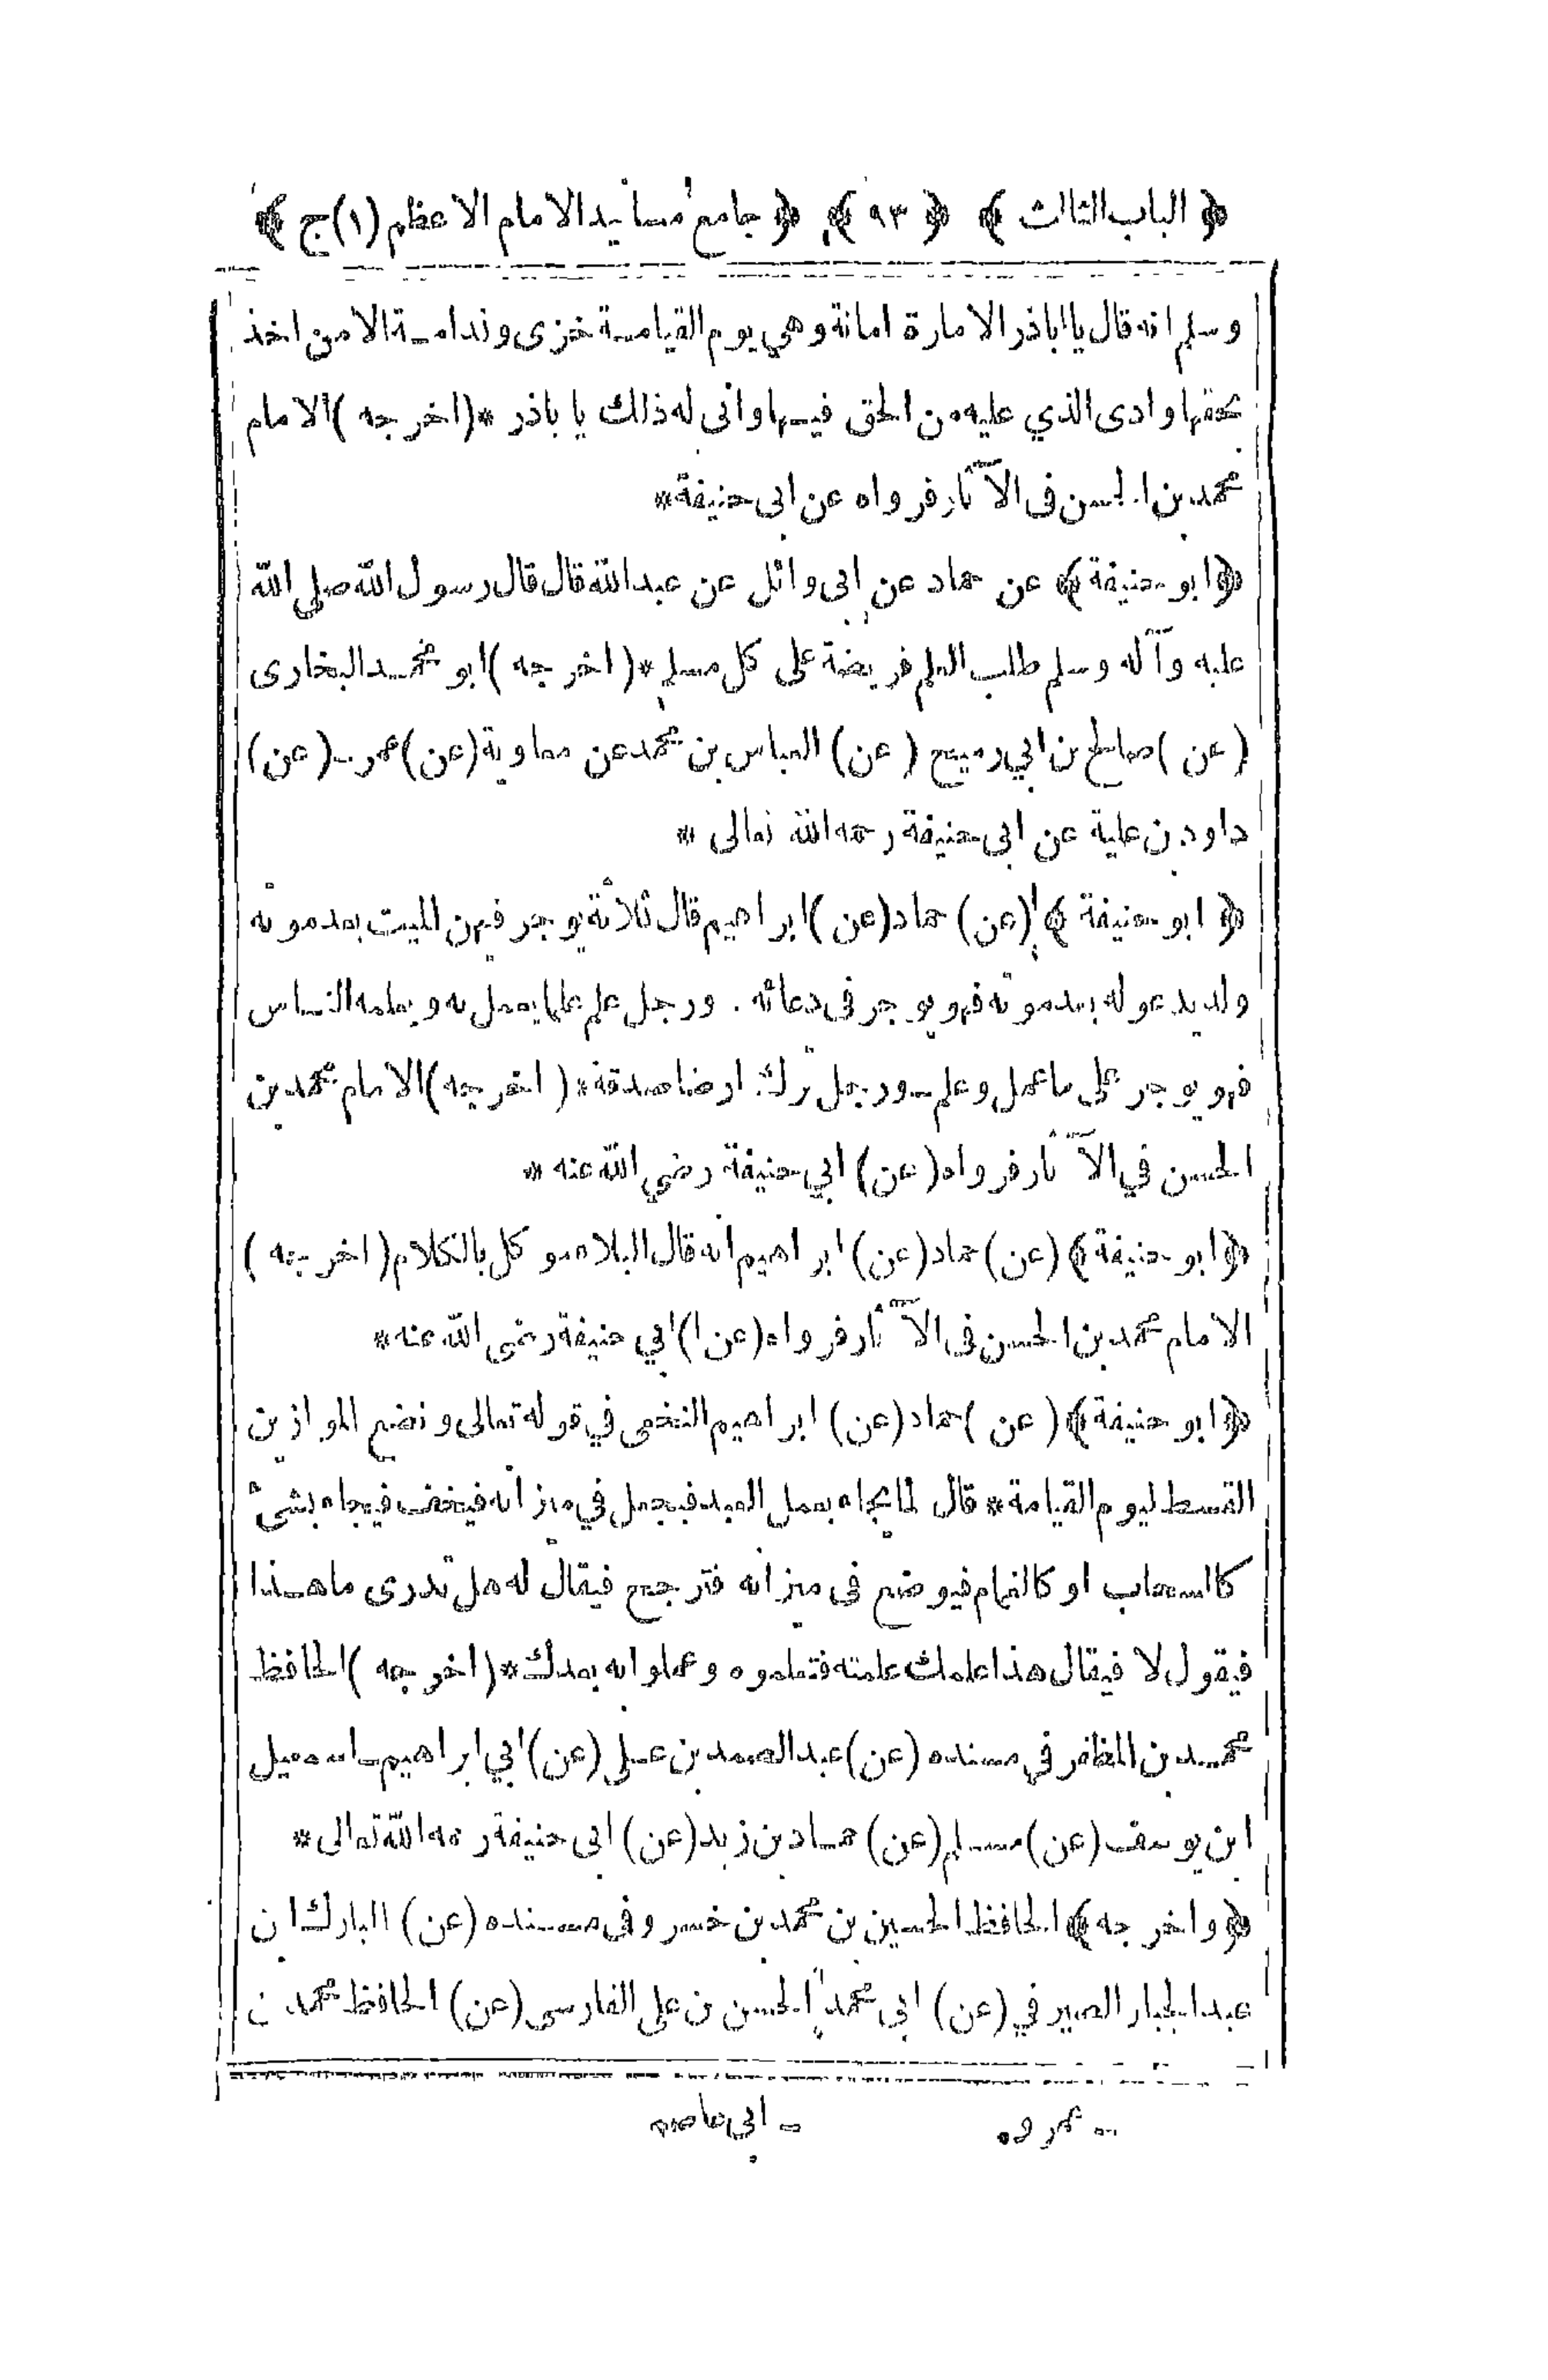 ﴿ الباب الثالث ﴾ ﴿ ٩٣ ﴾ ﴿ جامع مسانيد الامام الاعظم (١) ج ﴾
وسلم انه قال يا اباذر الامارة امانة وهي يوم القيامة خزى وندامة الا من اخذ
بحقها وادى الذي عليه من الحق فيها وانى له ذلك يا باذر *( اخرجه ) الامام
محمد بن الحسن فى الآثار فرواه عن ابى حنيفة *
﴿ ابو حنيفة ﴾ عن حماد عن ابى وائل عن عبد الله قال قال رسول الله صلى الله
عليه وآله وسلم طلب العلم فريضة على كل مسلم *( اخرجه ) ابو محمد البخارى
( عن ) صالح بن ابي رميح ( عن ) العباس بن محمد عن معاوية ( عن ) عمر ــ ( عن )
داود بن علية عن ابى حنيفة رحمه الله تعالى *
﴿ ابو حنيفة ﴾ ( عن ) حماد ( عن ) ابراهيم قال ثلاثة يوجر فيهن الميت بعد موته
ولد يدعو له بعد موته فهو يوجر فى دعائه . ورجل علم علما يعمل به ويعلمه الناس
فهو يوجر على ما عمل وعلم ــ ورجل ترك ارضا صدقة *( اخرجه ) الامام محمد بن
الحسن في الآثار فرواه ( عن ) ابي حنيفة رضي الله عنه *
﴿ ابو حنيفة ﴾ ( عن ) حماد ( عن ) ابراهيم انه قال البلاء موكل بالكلام ( اخرجه )
الامام محمد بن الحسن فى الآثار فرواه ( عن ا ) ابي حنيفة رضى الله عنه *
﴿ ابو حنيفة ﴾ ( عن ) حماد ( عن ) ابراهيم النخعى في قوله تعالى ونضع الموازين
القسط ليوم القيامة * قال لما يجاء بعمل العبد فيجعل في ميزانه فيخفف فيجاء بشئ
كالسحاب او كالغمام فيوضع فى ميزانه فترجح فيقال له هل تدرى ما هذا
فيقول لا فيقال هذا علمك علمته فتعلموه وعملوا به بعدك *( اخرجه ) الحافظ
محمد بن المظفر في مسنده ( عن ) عبد الصمد بن على ( عن ) ابي ابراهيم ــ اسمعيل
ابن يوسف ( عن ) مسلم ( عن ) حماد بن زيد ( عن ) ابى حنيفة رحمه الله تعالى *
﴿ واخرجه ﴾ الحافظ الحسين بن محمد بن خسرو فى مسنده ( عن ) المبارك بن
عبد الجبار الصيرفي ( عن ) ابى محمد الحسن بن على الفارسى ( عن ) الحافظ محمد بن
ــ عمروه ــ ابى عاصم